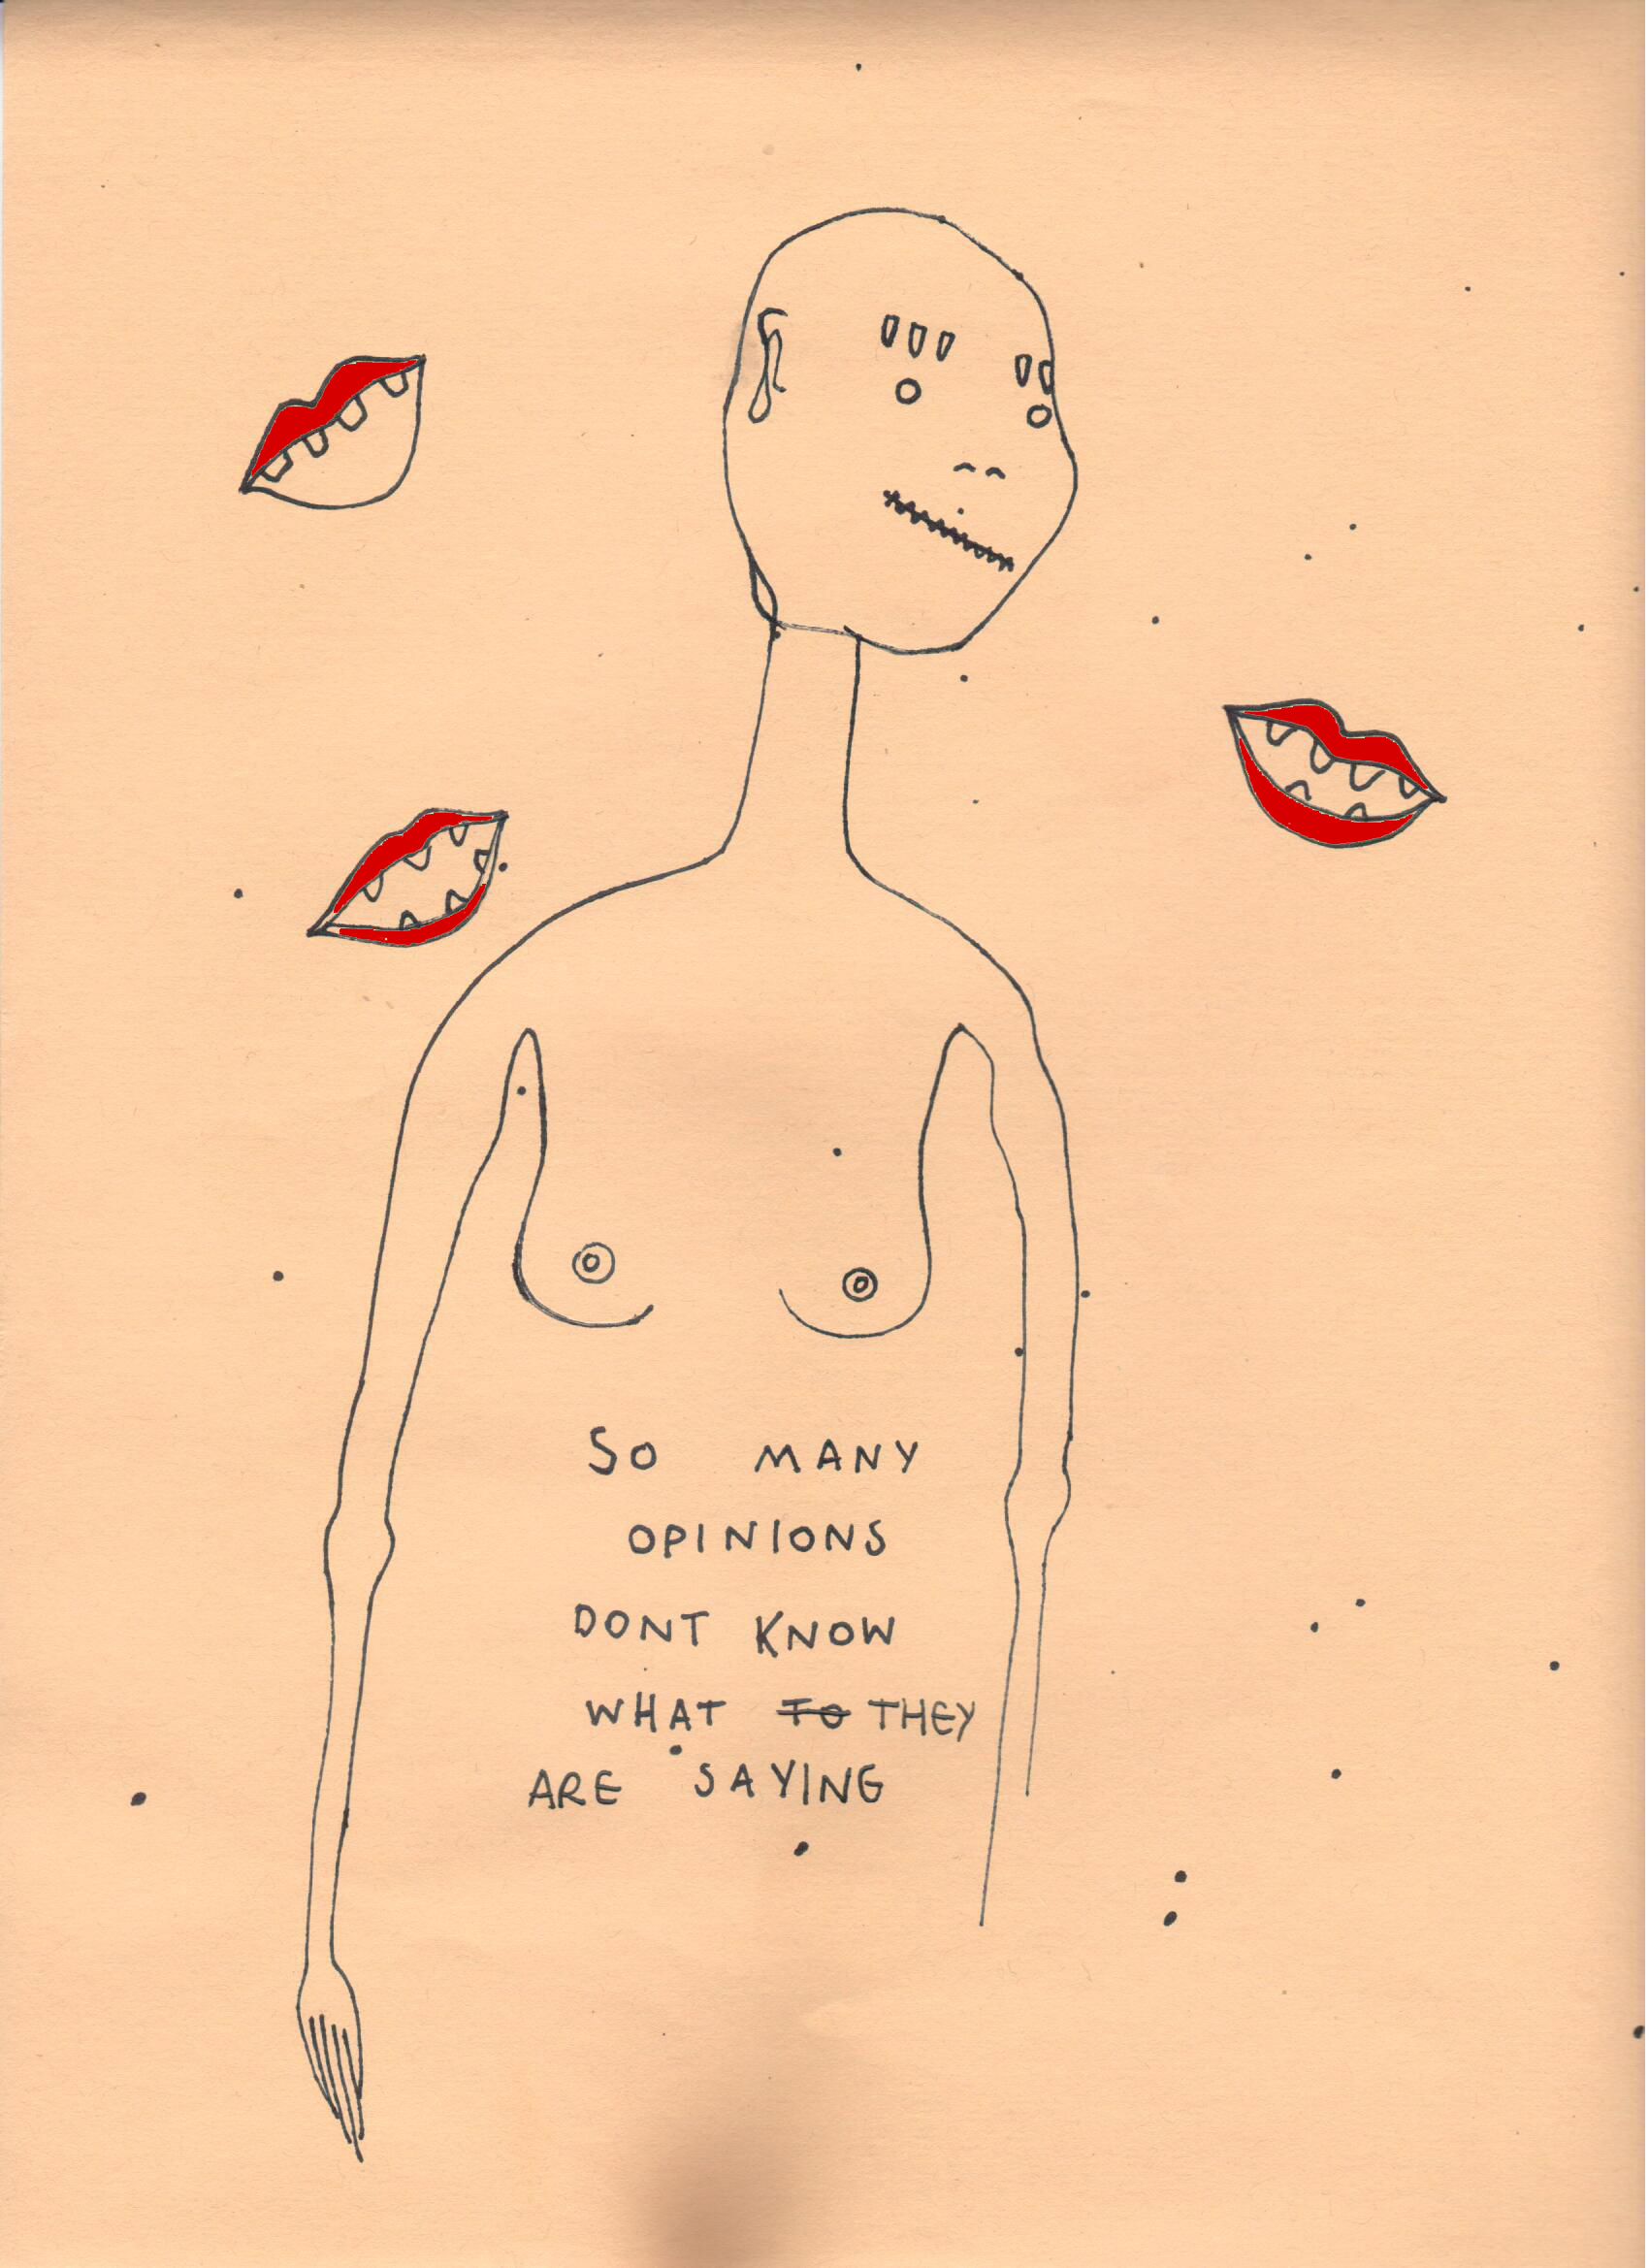 SO MANY
OPINIONS
DONT KNOW
WHAT TO THEY
ARE SAYING